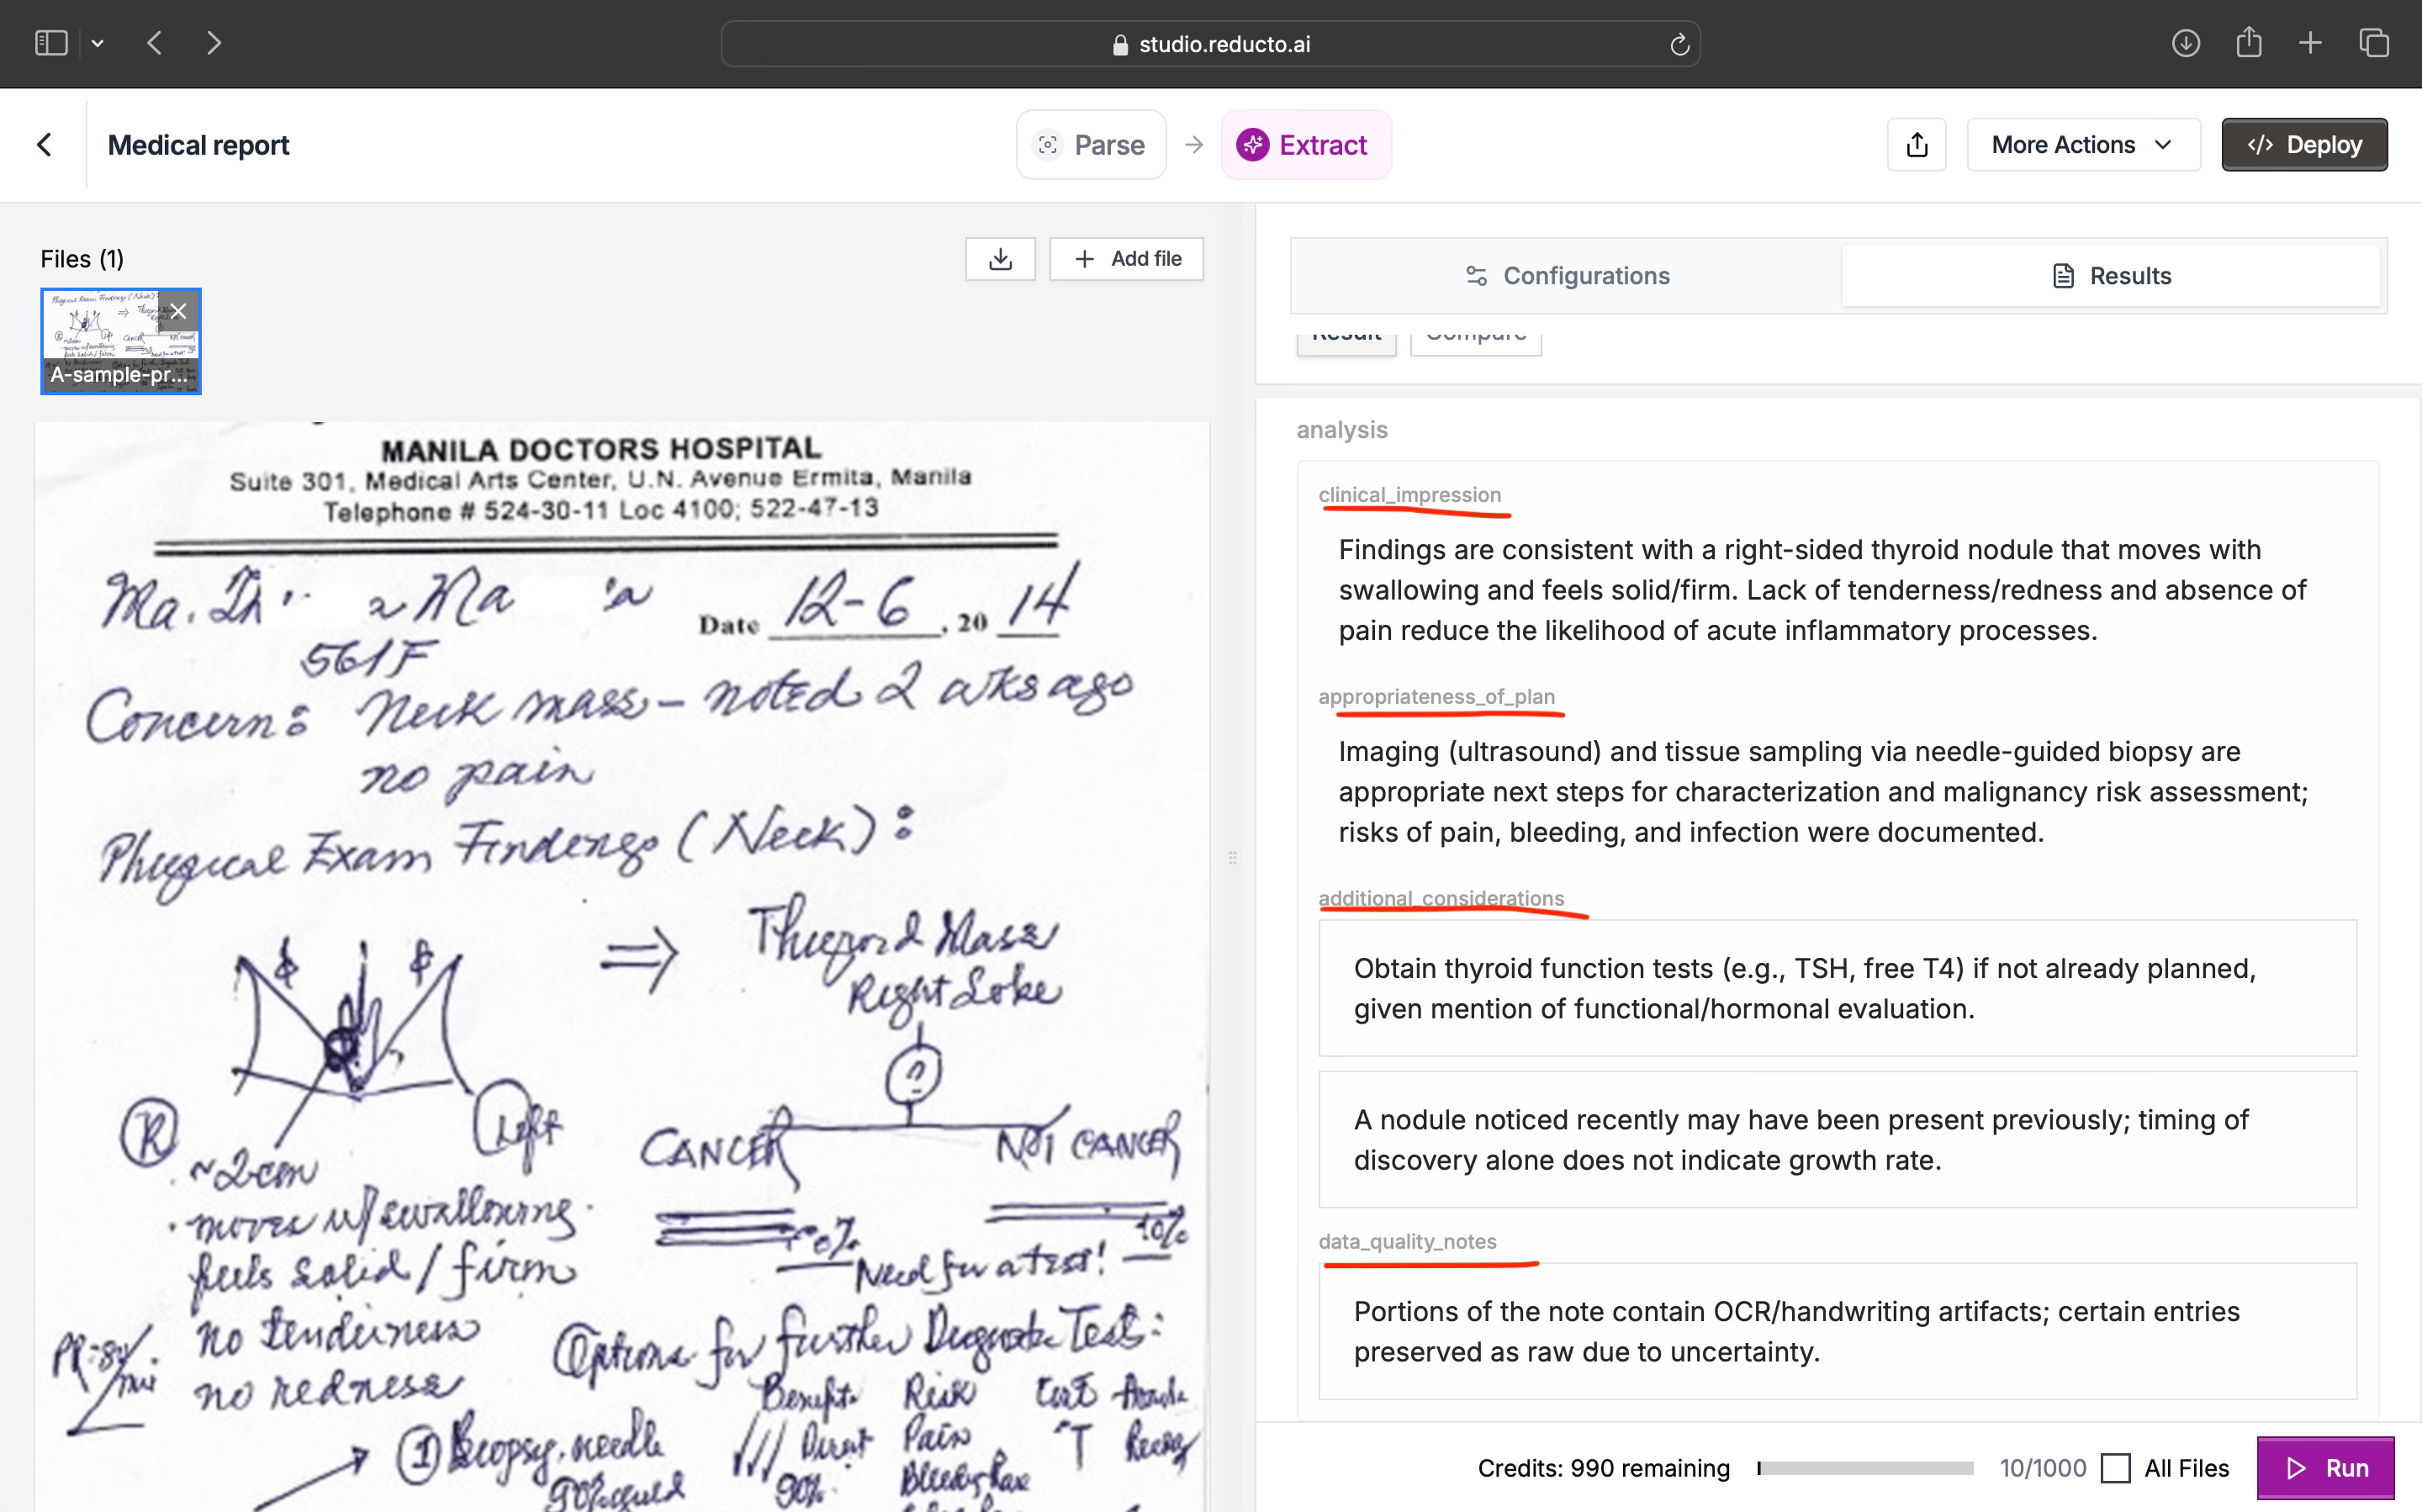 studio.reducto.ai
Medical report
Parse
Extract
More Actions
</> Deploy
Files (1)
Add file
A-sample-pr...
Configurations
Results
Result
Compare
MANILA DOCTORS HOSPITAL
Suite 301, Medical Arts Center, U.N. Avenue Ermita, Manila
Telephone # 524-30-11 Loc 4100; 522-47-13
Ma. Ma
Date 12-6, 20 14
56/F
Concern: Neck mass - noted 2 wks ago
no pain
Physical Exam Findings (Neck):
⇒ Thyroid Mass
Right Lobe
?
R
Left
CANCER
NOT CANCER
~2cm
• moves w/ swallowing
feels solid / firm
Need for a test!
no tenderness
no redness
Options for further Diagnostic Test:
Benefit Risk Cost
① Biopsy, needle
Direct Pain
90%
analysis
clinical_impression
Findings are consistent with a right-sided thyroid nodule that moves with
swallowing and feels solid/firm. Lack of tenderness/redness and absence of
pain reduce the likelihood of acute inflammatory processes.
appropriateness_of_plan
Imaging (ultrasound) and tissue sampling via needle-guided biopsy are
appropriate next steps for characterization and malignancy risk assessment;
risks of pain, bleeding, and infection were documented.
additional_considerations
Obtain thyroid function tests (e.g., TSH, free T4) if not already planned,
given mention of functional/hormonal evaluation.
A nodule noticed recently may have been present previously; timing of
discovery alone does not indicate growth rate.
data_quality_notes
Portions of the note contain OCR/handwriting artifacts; certain entries
preserved as raw due to uncertainty.
Credits: 990 remaining
10/1000
All Files
Run